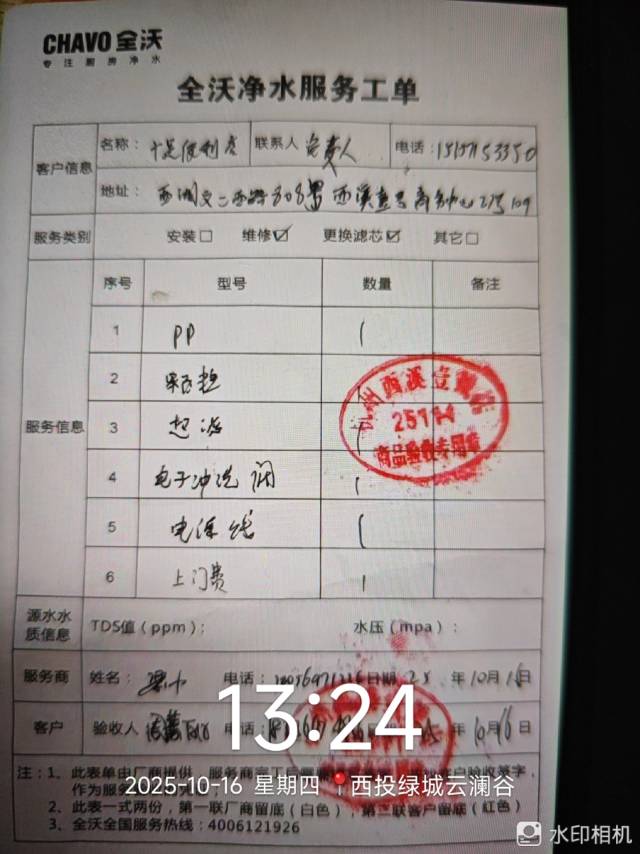 CHAVO 全沃
专注厨房净水
全沃净水服务工单
客户信息
名称：十足便利店 联系人 负责人 电话：15157153350
地址：西湖文二西路808号 西溪壹号商务中心27号109
服务类别 安装□ 维修☑ 更换滤芯☑ 其它□
服务信息
序号 型号 数量 备注
1 PP 1
2
3 超滤 1
4 电子冲洗阀 1
5 电源线 1
6 上门费 1
西溪壹号
25114
商品验收专用章
源水水质信息 TDS值（ppm）： 水压（mpa）：
服务商 姓名： 电话： 日期 25 年10月16日
客户 验收人 电话： 年10月16日
13:24
2025-10-16 星期四 西投绿城云澜谷
注：1、此表单由厂商提供，服务商完工 户验收签字，
作为服务
2、此表一式两份，第一联厂商留底（白色），第二联客户留底（红色）
3、全沃全国服务热线：4006121926
水印相机